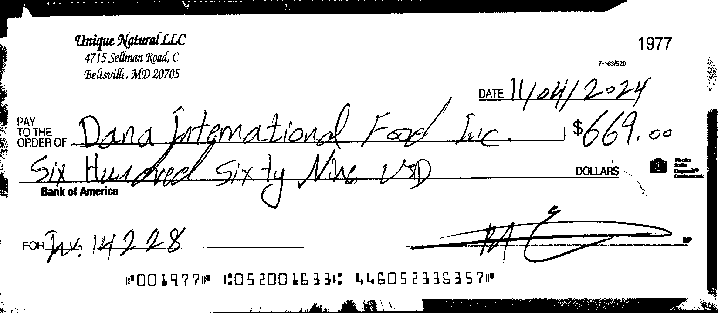 Unique Natural LLC
4715 Sellman Road, C
Beltsville, MD 20705
1977
DATE 11/04/2024
PAY TO THE ORDER OF Dana International Food Inc. $669.00
Six Hundred Sixty Nine USD DOLLARS
Bank of America
FOR Inv. 14228
⑈001977⑈ ⑆052001633⑆ 446052336357⑈